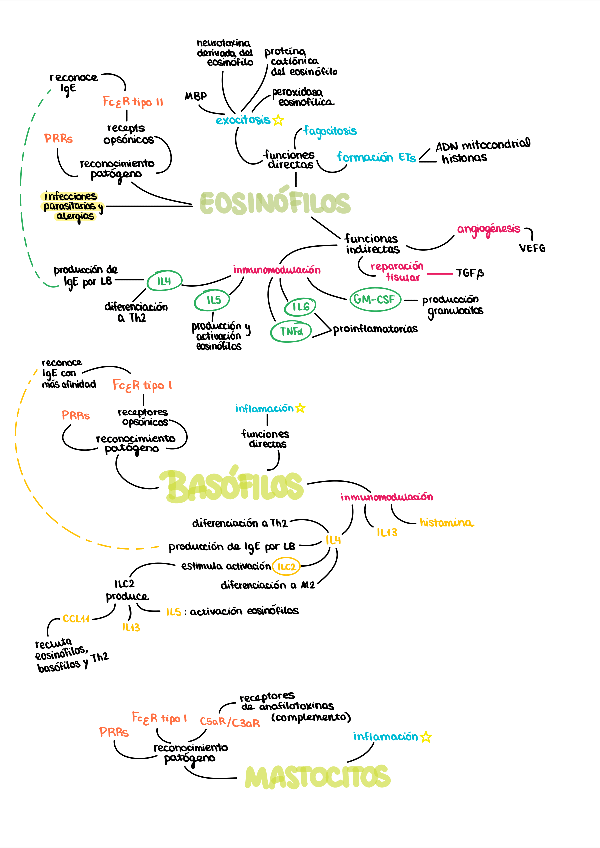 neurotoxina
derivada del
eosinófilo
proteína
catiónica
del eosinófilo
reconoce
IgE
MBP
peroxidasa
eosinofílica
FcεR tipo II
exocitosis
fagocitosis
PRRs
recepts
opsónicos
funciones
directas
formación ETs
ADN mitocondrial
histonas
reconocimiento
patógeno
infecciones
parasitarias y
alergias
EOSINÓFILOS
funciones
indirectas
angiogénesis
VEFG
reparación
tisular
TGFβ
producción de
IgE por LB
IL4
inmunomodulación
diferenciación
a Th2
IL5
IL6
GM-CSF
producción
granulocitos
producción y
activación
eosinófilos
TNFα
proinflamatorias
reconoce
IgE con
más afinidad
FcεR tipo I
PRRs
receptores
opsónicos
inflamación
reconocimiento
patógeno
funciones
directas
BASÓFILOS
inmunomodulación
diferenciación a Th2
histamina
IL13
IL4
producción de IgE por LB
estimula activación
ILC2
ILC2
produce
diferenciación a M2
CCL11
IL13
IL5: activación eosinófilos
recluta
eosinófilos,
basófilos y Th2
receptores
de anafilotoxinas
(complemento)
FcεR tipo I
C5aR/C3aR
PRRs
inflamación
reconocimiento
patógeno
MASTOCITOS